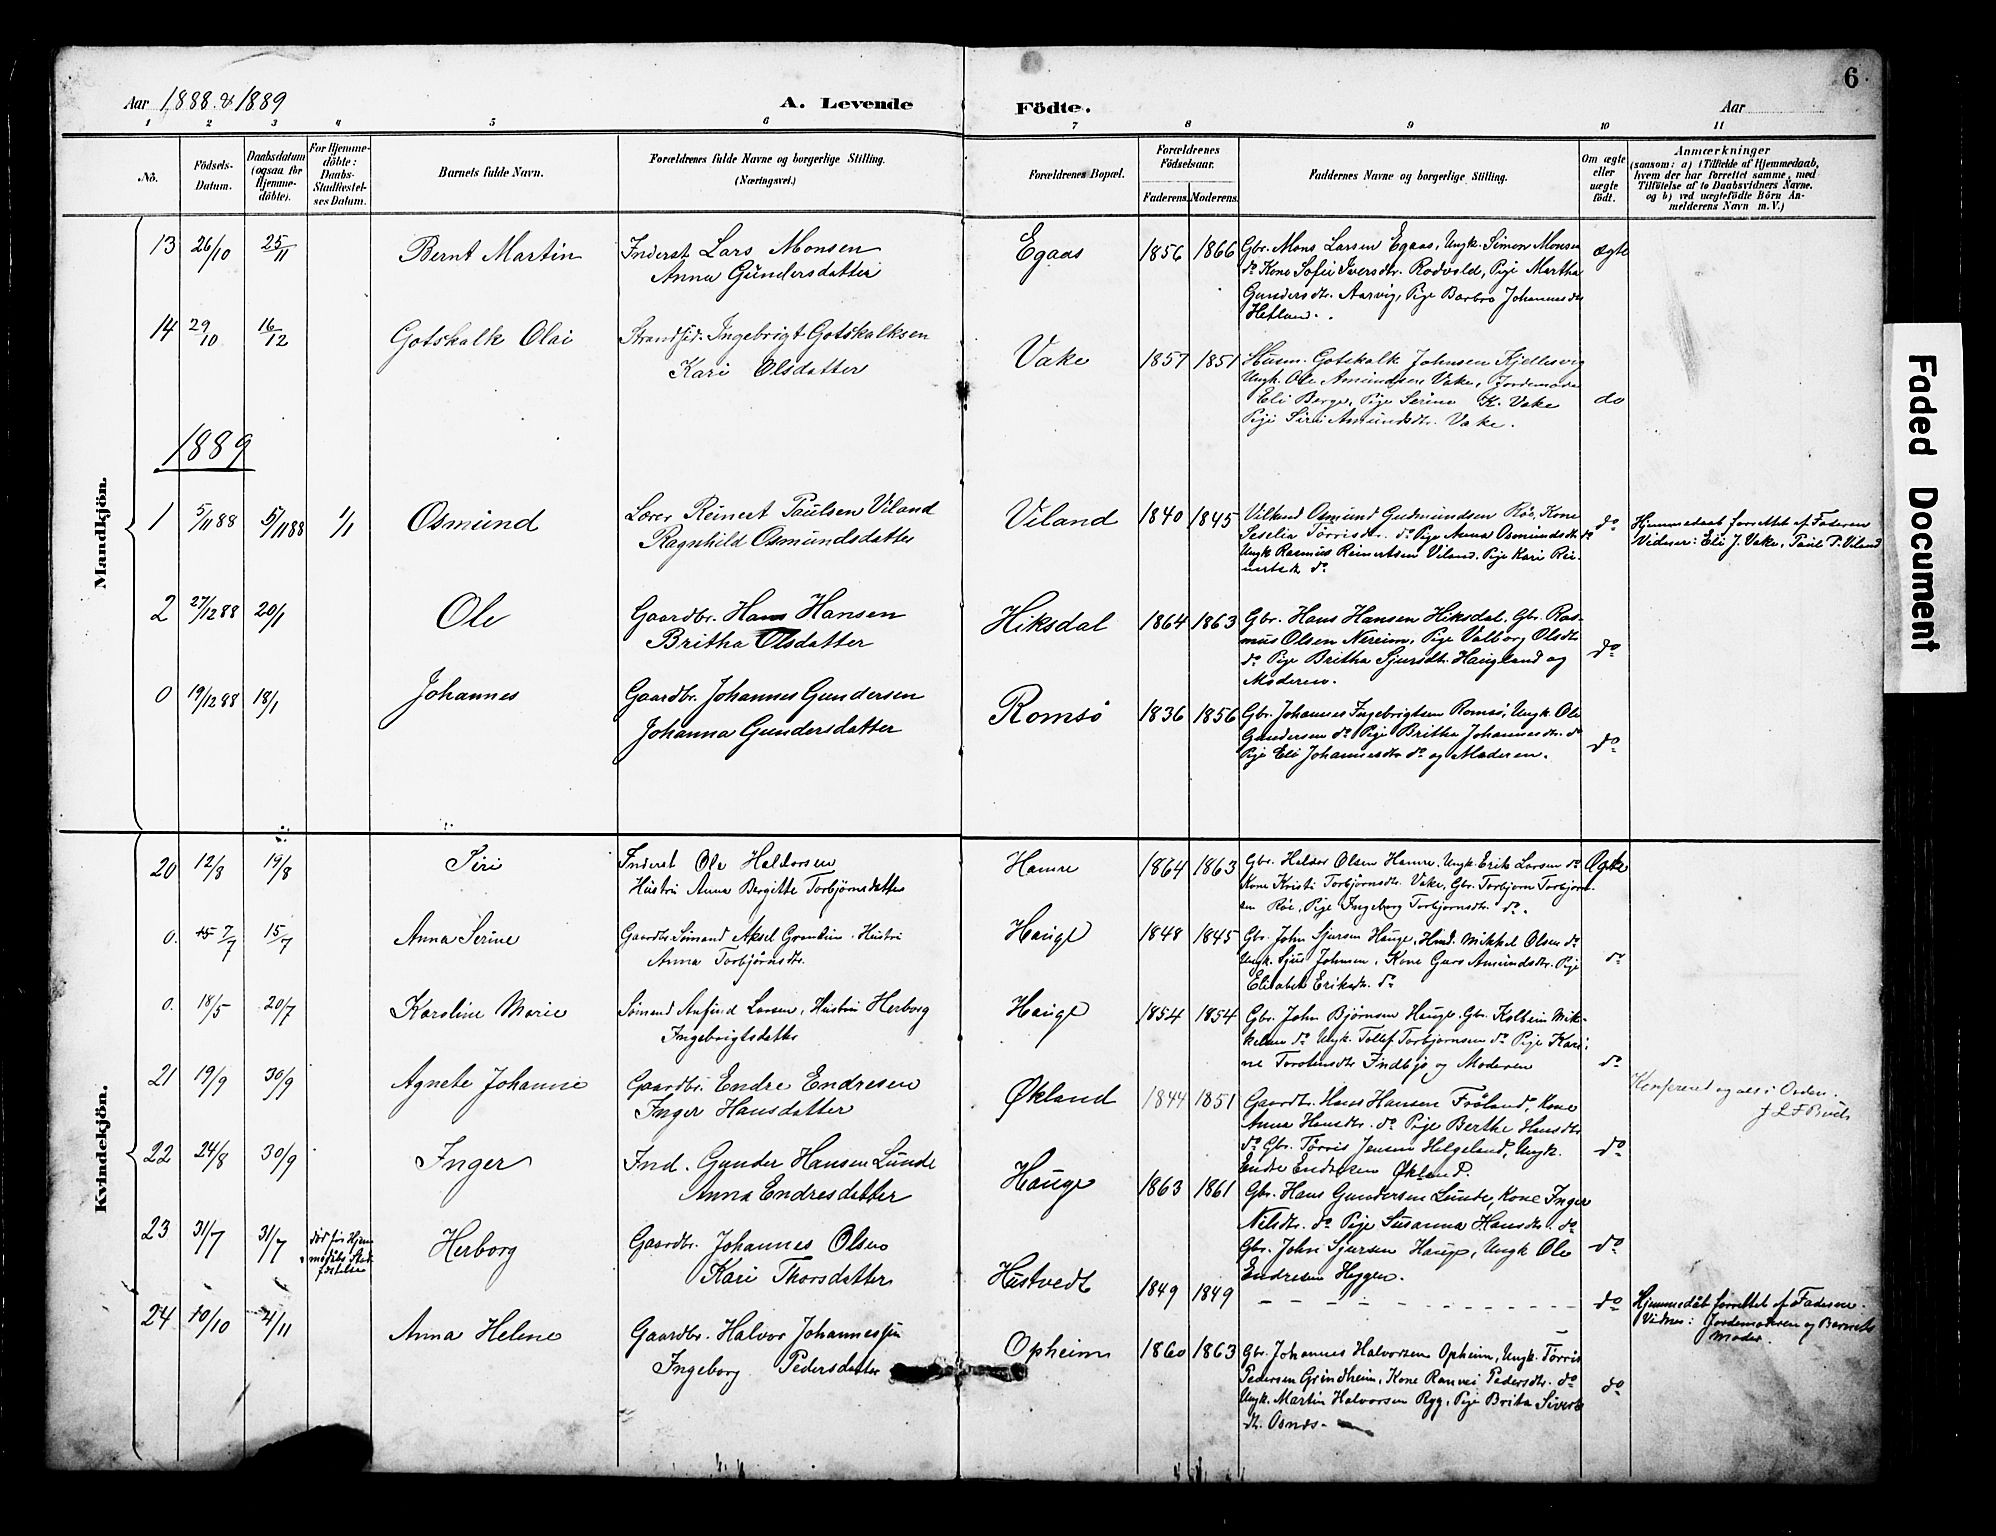 6
Aar 1888 & 1889
A. Levende Födte.
Aar
1 2 3 4 5 6 7 8 9 10 11
No.
Födsels-Datum.
Daabsdatum (ogsaa for Hjemme-döbte).
For Hjemme-döbte: Daabs-Stadfæstel-ses Datum.
Barnets fulde Navn.
Forældrenes fulde Navne og borgerlige Stilling.
(Næringsvei.)
Forældrenes Bopæl.
Forældrenes Födselsaar.
Faderens. Moderens.
Faddernes Navne og borgerlige Stilling.
Om ægte eller uægte födt.
Anmærkninger
(saasom: a) i Tilfælde af Hjemmedaab,
hvem der har forrettet samme, med
Tilföielse af to Daabsvidners Navne.
og b) ved uægtefödte Börn An-
melderens Navn m. V.)
Mandkjön.
13 26/10 25/11 Bernt Martin Inderst Lars Monsen
Anna Gundersdatter
Egaas 1856 1866
Gbr. Mons Larsen Egaas, Ungk. Simon Monsen
do Kone Sofie Iversdtr. Rodvold, Pige Martha
Gundersdtr. Aarvig, Pige Barbro Johannesdtr
Hetland.
ægte
14 29/10 16/12 Gotskalk Olai Strandsid. Ingebrigt Gotskalksen
Kari Olsdatter
Vake 1857 1851
Husm. Gotskalk Johnsen Kjellesvig
Ungk. Ole Amundsen Vake, Jordemoder
Eli Berge, Pige Serina K. Vake
Pige Siri Amundsdtr. Vake.
do
1889
1 5/11 88 5/11 88 1/1 Osmund Lærer Reinert Paulsen Viland
Ragnhild Osmundsdatter
Viland 1840 1845
Vilkund Osmund Gudmundsen Röe, Kone
Seselia Törrisdtr. do Pige Anna Osmundsdtr do
Ungk Rasmus Reinertsen Viland. Pige Kari Rei-
nertsdtr do
do
Hjemmedaab forrettet af Faderen
Vidner: Eli J. Vake, Paul P. Viland
2 27/12 88 20/1 Ole Gaardbr. Hans Hansen
Britha Olsdatter
Hiksdal 1864 1863
Gbr. Hans Hansen Hiksdal, Gbr. Ras-
mus Olsen Nereim, Pige Valborg Olsdtr
do Pige Britha Sjursdtr. Haugland og
Moderen.
do
0 19/12 88 18/1 Johannes Gaardbr. Johannes Gundersen
Johanna Gundersdatter
Romsö 1836 1856
Gbr. Johannes Ingebrigtsen Romsö, Ungk. Ole
Gundersen do Pige Britha Johannesdtr. do
Pige Eli Johannesdtr do og Moderen.
do
Kvindekjön.
20 12/8 19/8 Siri Inderst Ole Haldorsen
Hustru Anna Bergitte Torbjörnsdatter
Hamre 1864 1863
Gbr. Haldor Olsen Hamre. Ungk. Erik Larsen do
Kone Kristi Torbjörnsdtr. Vake, Gbr. Torbjorn Torbjorn-
sen Röe, Pige Ingeborg Torbjornsdtr. do.
Ægte
0. 7/7 15/7 Anna Serine Gaardbr Sömand Aksel Hustru
Anna Torbjörnsdtr.
Hauge 1848 1845
Gbr. John Sjursen Hauge, Mikkel Olsen do
Ungk. Sjur Johnsen, Kone Guro Amundsdtr. Pige
Elisabet Eriksdtr. do
do
0. 18/5 20/7 Karoline Marie Sömand Anfind Larsen, Hustru Herborg
Ingebrigtsdatter
Hauge 1854 1854
Gbr. John Bjørnsen Hauge. Gbr. Kolbein Mik-
kelsen do Ungk. Tollef Torbjornsen do Pige Kari-
ne Torstensdtr Indbjo og Moderen
do
21 19/9 30/9 Agnete Johanne Gaardbr. Endre Endresen
Inger Hansdatter
Økland 1844 1851
Gaardbr. Hans Hansen Fröland, Kone
Anna Hansdtr. do Pige Berthe Hansdtr
do Gbr. Törris Jensen Helgeland, Ungk.
Endre Endresen Økland.
do
Konfereret og alt i Orden.
22 24/8 30/9 Inger Ind. Gunder Hansen Lunde
Anna Endresdatter
Hauge 1863 1861
Gbr. Hans Gundersen Lunde, Kone Inger
Nilsdtr. do Pige Susanna Hansdtr. do
Gbr. John Sjursen Hauge, Ungk Ole
Endresen Heggen.
do
23 31/7 31/7 död för Hjem-
medåbs Stad-
fæstelse
Herborg Gaardbr. Johannes Olsen
Kari Thorsdatter
Hustvedt 1849 1849
do
Hjemmedåb forrettet af Faderen.
Vidner: Jordemoderen og Barnets
Moder.
24 10/10 4/11 Anna Helene Gaardbr. Halvor Johannessen
Ingeborg Pedersdatter
Opheim 1860 1863
Gbr. Johannes Halvorsen Opheim, Ungk. Törris
Pedersen Grindheim, Kone Ranvei Pedersdtr. do
Ungk. Martin Halvorsen Ryg, Pige Brita Siverts
dtr. Osnes.
do
Faded Document